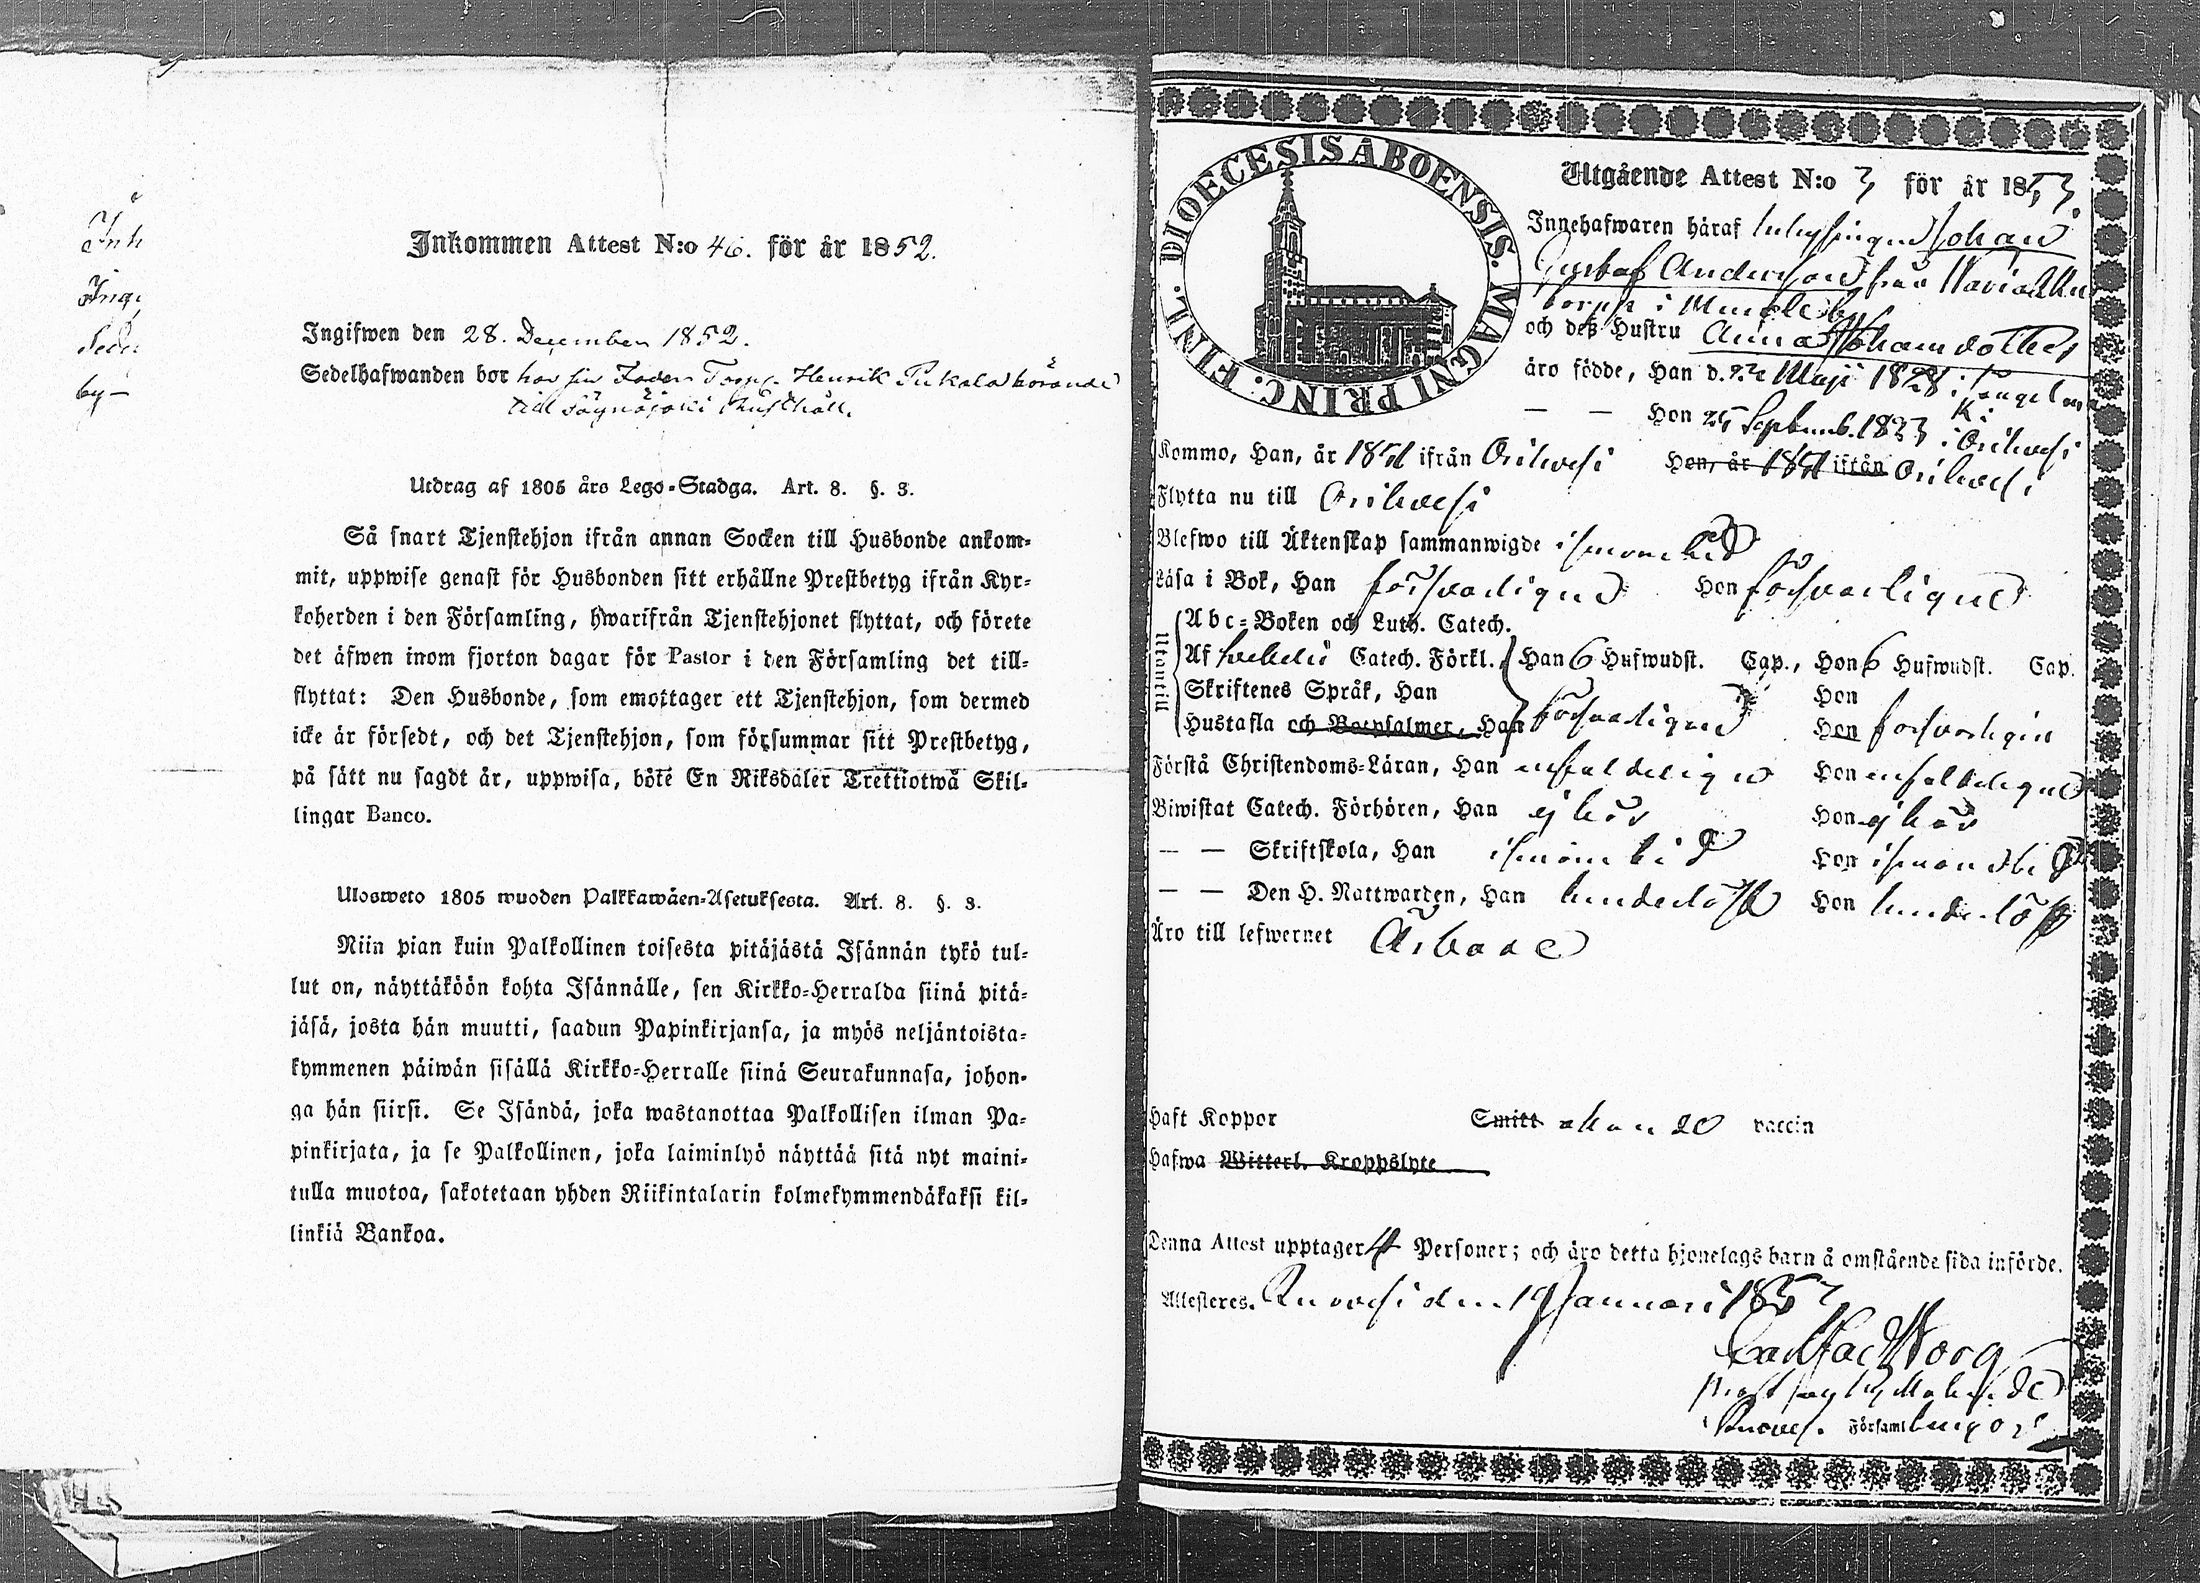 Inh
Inkommen Attest N:o 46. för år 1852.
Inge
Ingifwen den 28. December 1852.
Sedelhafwanden bor hos sin Fader Torp. Henrik Pukala hörande
by –
till Säynäjoki Rusthåll.
Utdrag af 1805 års Lego-Stadga. Art. 8. §. 3.
Så snart Tjenstehjon ifrån annan Socken till Husbonde ankom-
mit, uppwise genast för Husbonden sitt erhållne Prestbetyg ifrån Kyr-
koherden i den Församling, hwarifrån Tjenstehjonet flyttat, och förete
det äfwen inom fjorton dagar för Pastor i den Församling det till-
flyttat: Den Husbonde, som emottager ett Tjenstehjon, som dermed
icke är försedt, och det Tjenstehjon, som försummar sitt Prestbetyg,
på sätt nu sagdt är, uppwisa, böte En Riksdaler Trettiotwå Skil-
lingar Banco.
Ulosweto 1805 wuoden Palkkawäen-Asetuksesta. Art. 8. §. 3.
Niin pian kuin Palkollinen toisesta pitäjästä Isännän tykö tul-
lut on, näyttäköön kohta Isännälle, sen Kirkko-Herralda siinä pitä-
jäsä, josta hän muutti, saadun Papinkirjansa, ja myös neljäntoista-
kymmenen päiwän sisällä Kirkko-Herralle siinä Seurakunnasa, johon-
ga hän siirsi. Se Isändä, joka wastanottaa Palkollisen ilman Pa-
pinkirjata, ja se Palkollinen, joka laiminlyö näyttää sitä nyt maini-
tulla muotoa, sakotetaan yhden Riikintalarin kolmekymmendäkaksi kil-
linkiä Bankoa.
DIOECESIS ABOENSIS. MAGNI PRINC. FINL.
Utgående Attest N:o 3 för år 1853.
Innehafwaren häraf Inhysingen Johan
Gustaf Andersson från
torp i
och deß Hustru Anna Johansdotter
äro födde, Han d. 22 Maji 1828 i Längelmä
— — Hon 25 Septemb. 1823 i Orihvesi
Kommo, Han, år 1851 ifrån Orihvesi Hon, år 1851 ifrån Orihvesi
Flytta nu till Orihvesi
Blefwo till Äktenskap sammanwigde
Läsa i Bok, Han försvarligen Hon försvarligen
Utantill
Abc-Boken och Luth. Catech.
Af Svebelii Catech. Förkl. Han 6 Hufwudst. Cap., Hon 6 Hufwudst. Cap.
Skriftenes Språk, Han Hon
Hustafla och Botpsalmer, Han försvarligen Hon försvarligen
Förstå Christendoms-Läran, Han enfaldeligen Hon enfaldeligen
Biwistat Catech. Förhören, Han ej här Hon ej här
— — Skriftskola, Han Hon
— — Den H. Nattwarden, Han hinderlöst Hon hinderlöst
Äro till lefwernet Ärbare
Haft Koppor Smitt vaccin
Hafwa Witterl. Kroppslyte
Denna Attest upptager 4 Personer; och äro detta hjonelags barn å omstående sida införde.
Attesteres. Ruovesi den 19 Januari 1853
i Ruoves. Församl